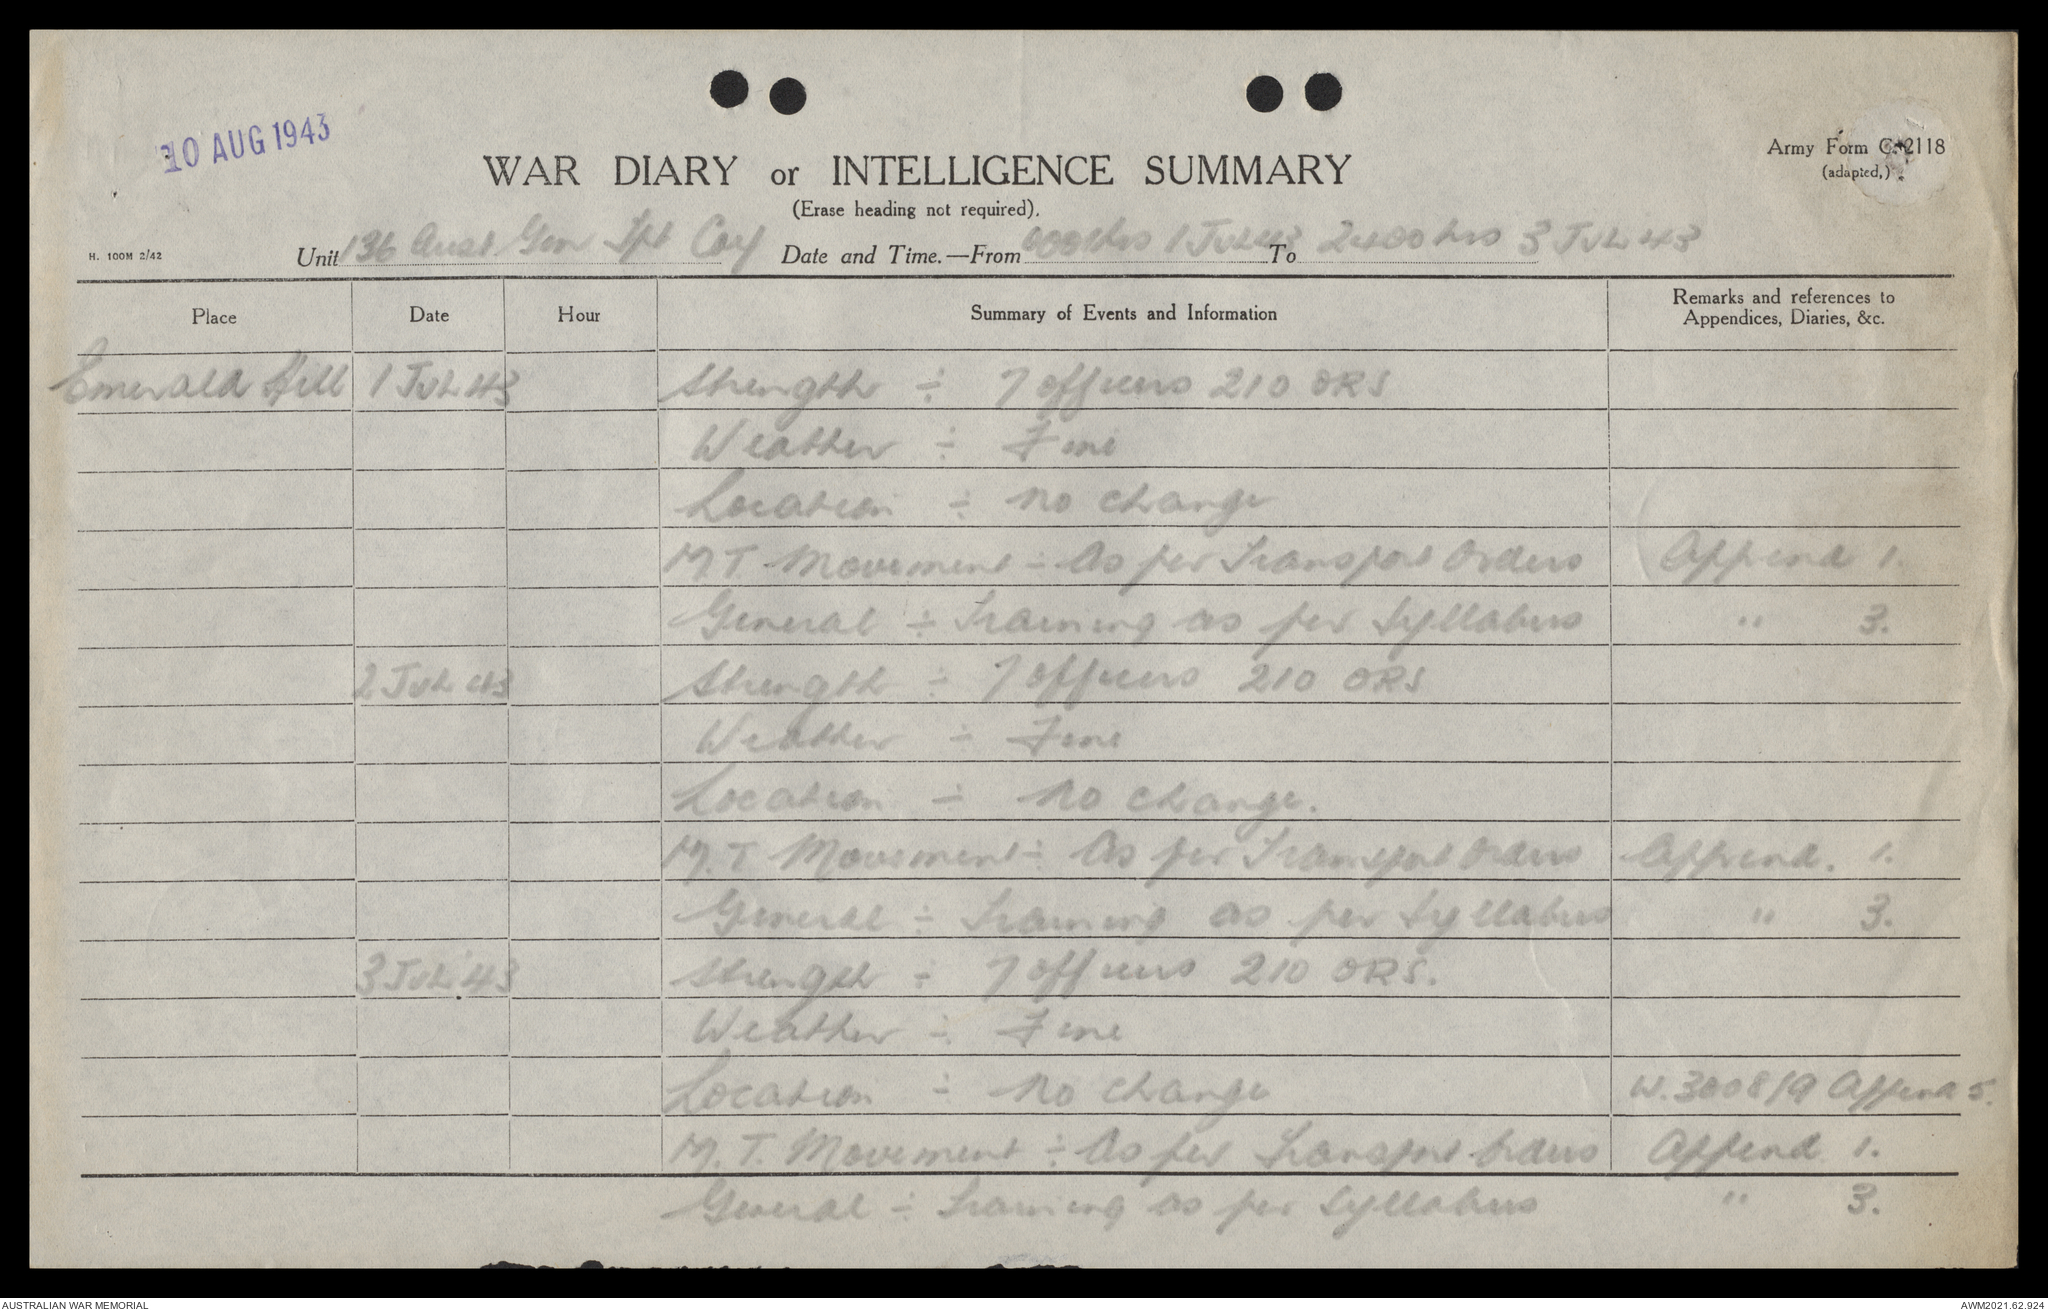 10 AUG 1943
Army Form C. 2118
(adapted,)
WAR DIARY or INTELLIGENCE SUMMARY
(Erase heading not required).
H. 100M 2/42 Unit 136 Aust Gen Tpt Coy Date and Time.—From 0001hrs 1 JUL 43 To 2400 hrs 3 JUL 43
Place Date Hour Summary of Events and Information Remarks and references to
Appendices, Diaries, &c.
Emerald Hill 1 JUL 43 Strength ÷ 7 officers 210 ORS
Weather ÷ Fine
Location ÷ No change
M.T. Movement ÷ As per Transport Orders Append 1.
General ÷ Training as per Syllabus " 3.
2 JUL 43 Strength ÷ 7 officers 210 ORS
Weather ÷ Fine
Location ÷ No change.
M.T. Movement ÷ As per Transport Orders Append. 1.
General ÷ Training as per Syllabus " 3.
3 JUL 43 Strength ÷ 7 officers 210 ORS.
Weather ÷ Fine
Location ÷ No change W.3008/9 Append 5.
M.T. Movement ÷ As per Transport Orders Append 1.
General ÷ Training as per Syllabus " 3.
AUSTRALIAN WAR MEMORIAL AWM2021.62.924